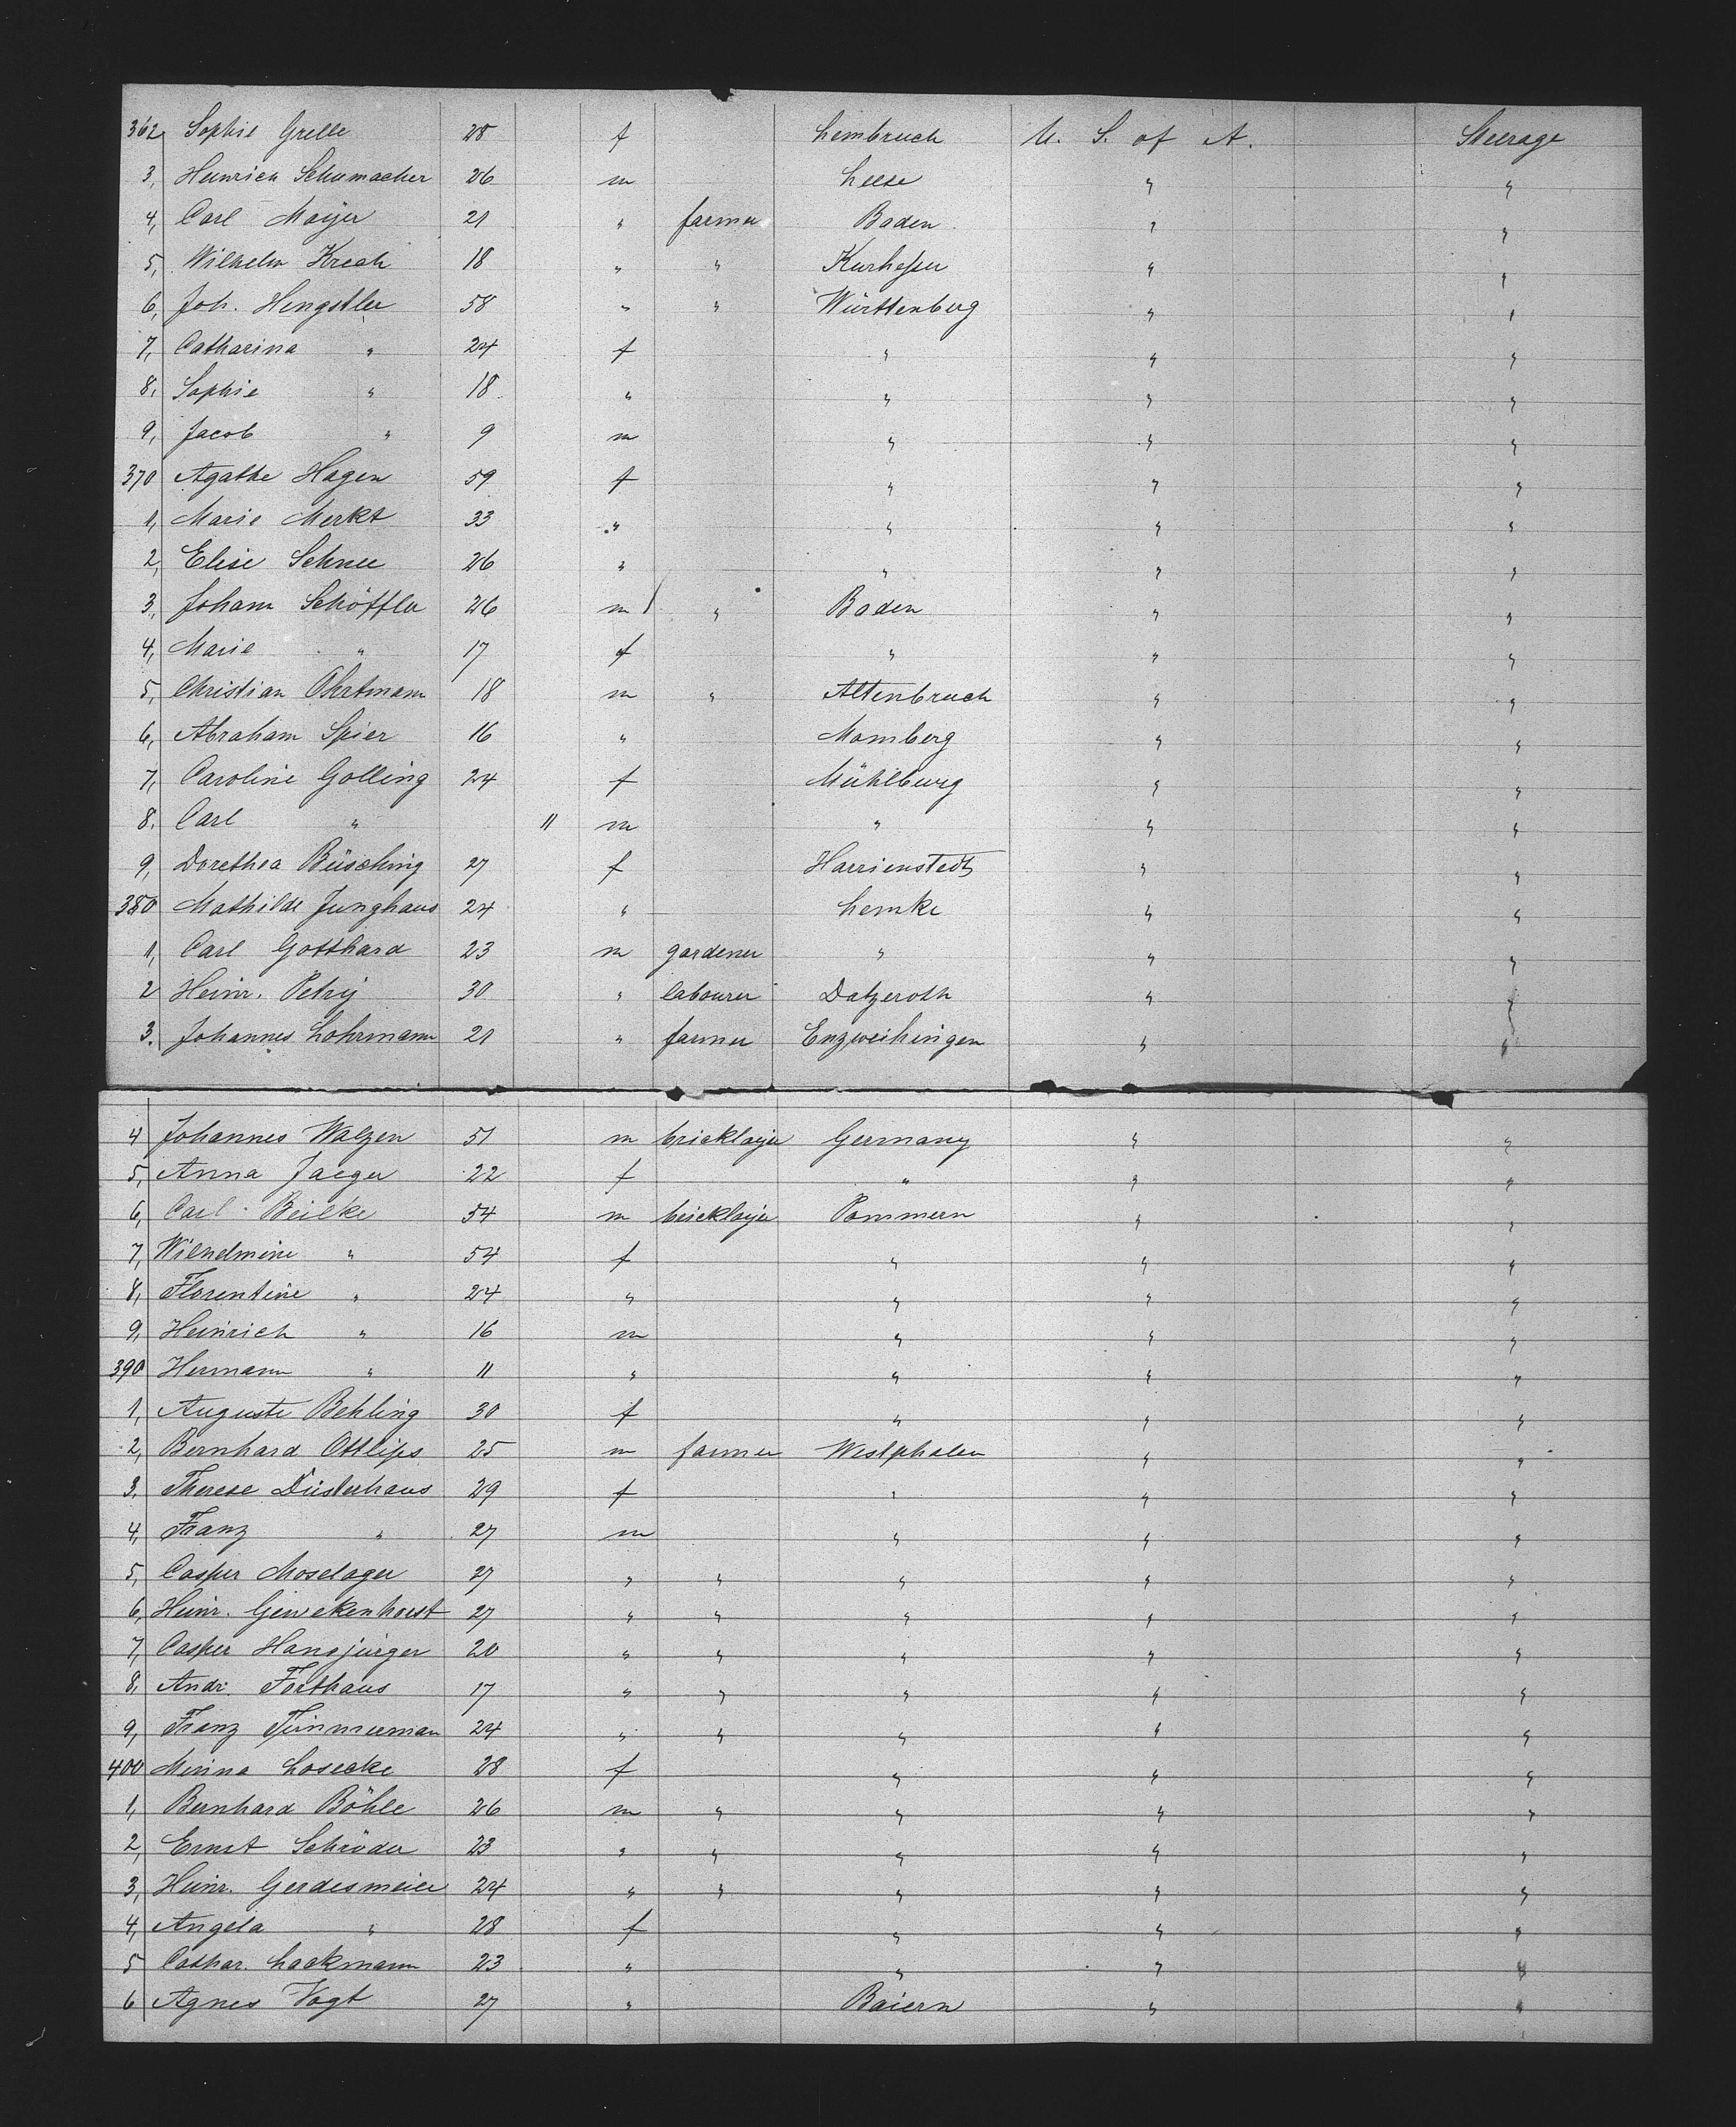 362, Sophie Grelle 28 f Lembruch U. S. of A. Steerage
3, Heinrich Schumacher 26 m Leese " "
4, Carl Mayer 21 " farmer Baden " "
5, Wilhelm Krech 18 " " Kurhessen " "
6, Joh. Hengstler 58 " " Württenberg " "
7, Catharina " 24 f " " "
8, Sophie " 18 " " " "
9, Jacob " 9 m " " "
370 Agathe Hagen 59 f " " "
1, Marie Merkt 33 " " " "
2, Elise Schnee 26 " " " "
3, Johann Schöffler 26 m " Baden " "
4, Marie " 17 f " " "
5, Christian Ohrtmann 18 m " Altenbruch " "
6, Abraham Spier 16 " Momberg " "
7, Caroline Golling 24 f Mühlburg " "
8. Carl " 11 m " " "
9, Dorethea Büsching 27 f Harrienstedt " "
380 Mathilde Junghaus 24 " Lemke " "
1, Carl Gotthard 23 m gardener " " "
2 Heinr. Petry 30 " labourer Datzeroth " "
3. Johannes Lohrmann 21 " farmer Enzweihingen " "
4 Johannes Walzen 51 m bricklayer Germany " "
5, Anna Jaeger 22 f " " "
6, Carl Beilke 54 m bricklayer Pommern " "
7, Wilhelmine " 54 f " " "
8, Florentine " 24 " " " "
9, Heinrich " 16 m " " "
390 Hermann " 11 " " " "
1, Auguste Behling 30 f " " "
2, Bernhard Ottlips 25 m farmer Westphalen " "
3. Therese Düsterhaus 29 f " " "
4, Franz " 27 m " " "
5, Casper Moselager 27 " " " " "
6, Heinr. Gewekenhorst 27 " " " " "
7, Casper Hansjürgen 20 " " " " "
8, Andr. Forthaus 17 " " " " "
9, Franz Timmerman 24 " " " " "
400 Minna Losecke 28 f " " "
1, Bernhard Böhle 26 m " " " "
2, Ernst Schröder 23 " " " " "
3, Heinr. Gerdesmeier 24 " " " " "
4, Angela " 28 f " " "
5 Cathar. Lackmann 23 " " " "
6 Agnes Vogt 27 " Baiern " "